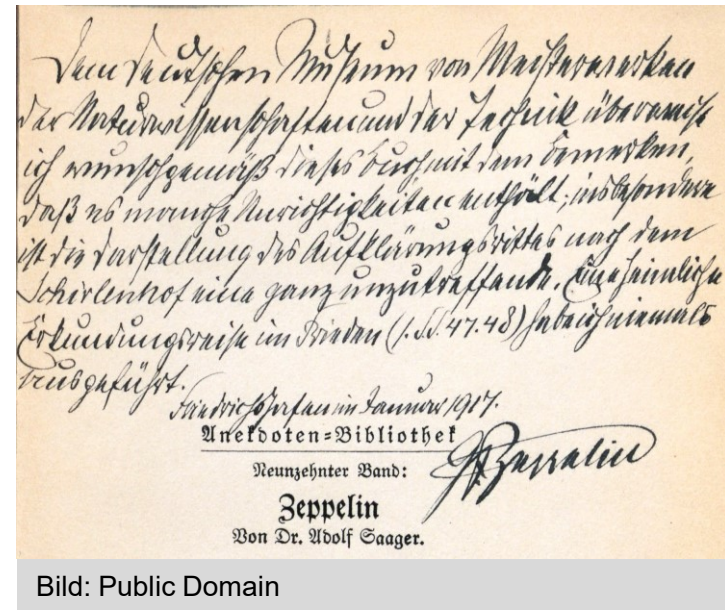 Dem Deutschen Museum von Meisterwerken
der Naturwissenschaften und der Technik überweise
ich wunschgemäß dieses Buch mit dem Bemerken,
daß es manche Unrichtigkeiten enthält; insbesondere
ist die Darstellung des Aufklärungsrittes nach dem
Schirlenhof eine ganz unzutreffende. Eine heimliche
Erkundungsreise im Frieden (s. S. 47.48) habe ich niemals
ausgeführt.
Friedrichshafen im Januar 1917.
Anekdoten-Bibliothek
Neunzehnter Band:
Zeppelin
Zeppelin
Von Dr. Adolf Saager.
Bild: Public Domain